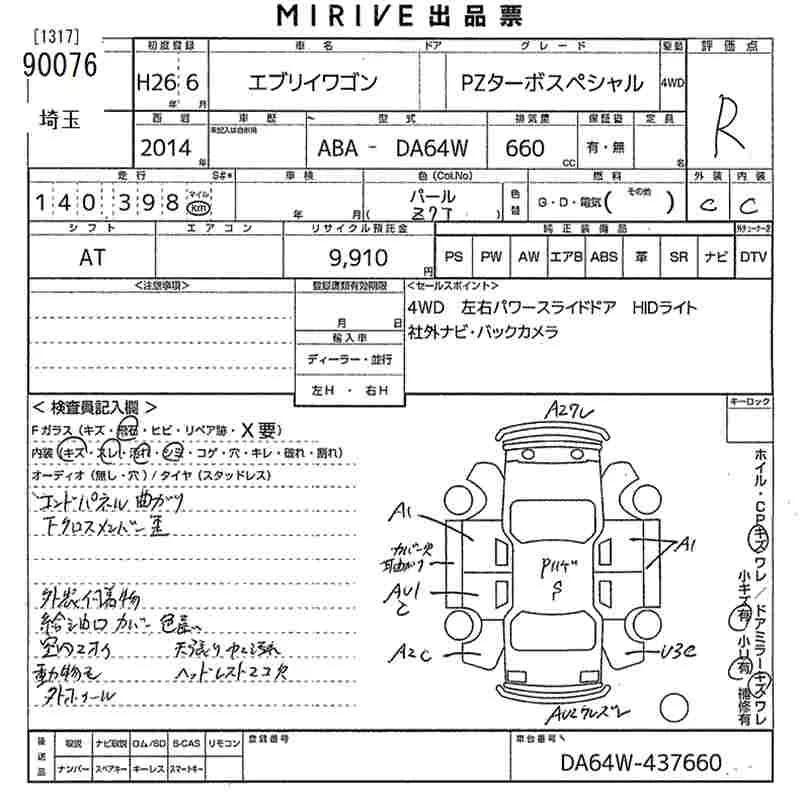 MIRIVE 出品票
[1317]
90076
埼玉
初度登録 車名 ドア グレード 駆動 評価点
H26 6 エブリイワゴン PZターボスペシャル 4WD R
年 月
西暦 車歴 型式 排気量 保証書 定員
未記入は自家用
2014 年 ABA - DA64W 660 CC 有・無 名
走行 S#* 車検 色(Col.No) 燃料 外装 内装
140,398 マイル km 年 月 パール 色替 G・D・電気( その他 ) C C
( Z7T )
シフト エアコン リサイクル預託金 純正装備品
AT 9,910 円 PS PW AW エアB ABS 革 SR ナビ DTV
<注意事項> 登録書類有効期限 <セールスポイント>
月 日
4WD 左右パワースライドドア HIDライト
社外ナビ・バックカメラ
輸入車
ディーラー・並行
左H ・ 右H
キーロック
< 検査員記入欄 >
Fガラス (キズ・飛石・ヒビ・リペア跡・X要)
内装 (キズ・スレ・汚れ・シミ・コゲ・穴・キレ・破れ・割れ)
オーディオ (無し・穴) / タイヤ (スタッドレス)
エンドパネル 曲がり
下クロスメンバー
外装付着物
給油口カバー 色
天張り
動物毛
ヘッドレスト
A1
A1
A2C
U3C
S
ホイル・CPキズワレ/ドアミラーキズワレ
小キズ有 小U有 補修有
後送品 取説 ナビ取説 ロム/SD S-CAS リモコン
ナンバー スペアキー キーレス スマートキー
登録番号 車台番号
DA64W-437660